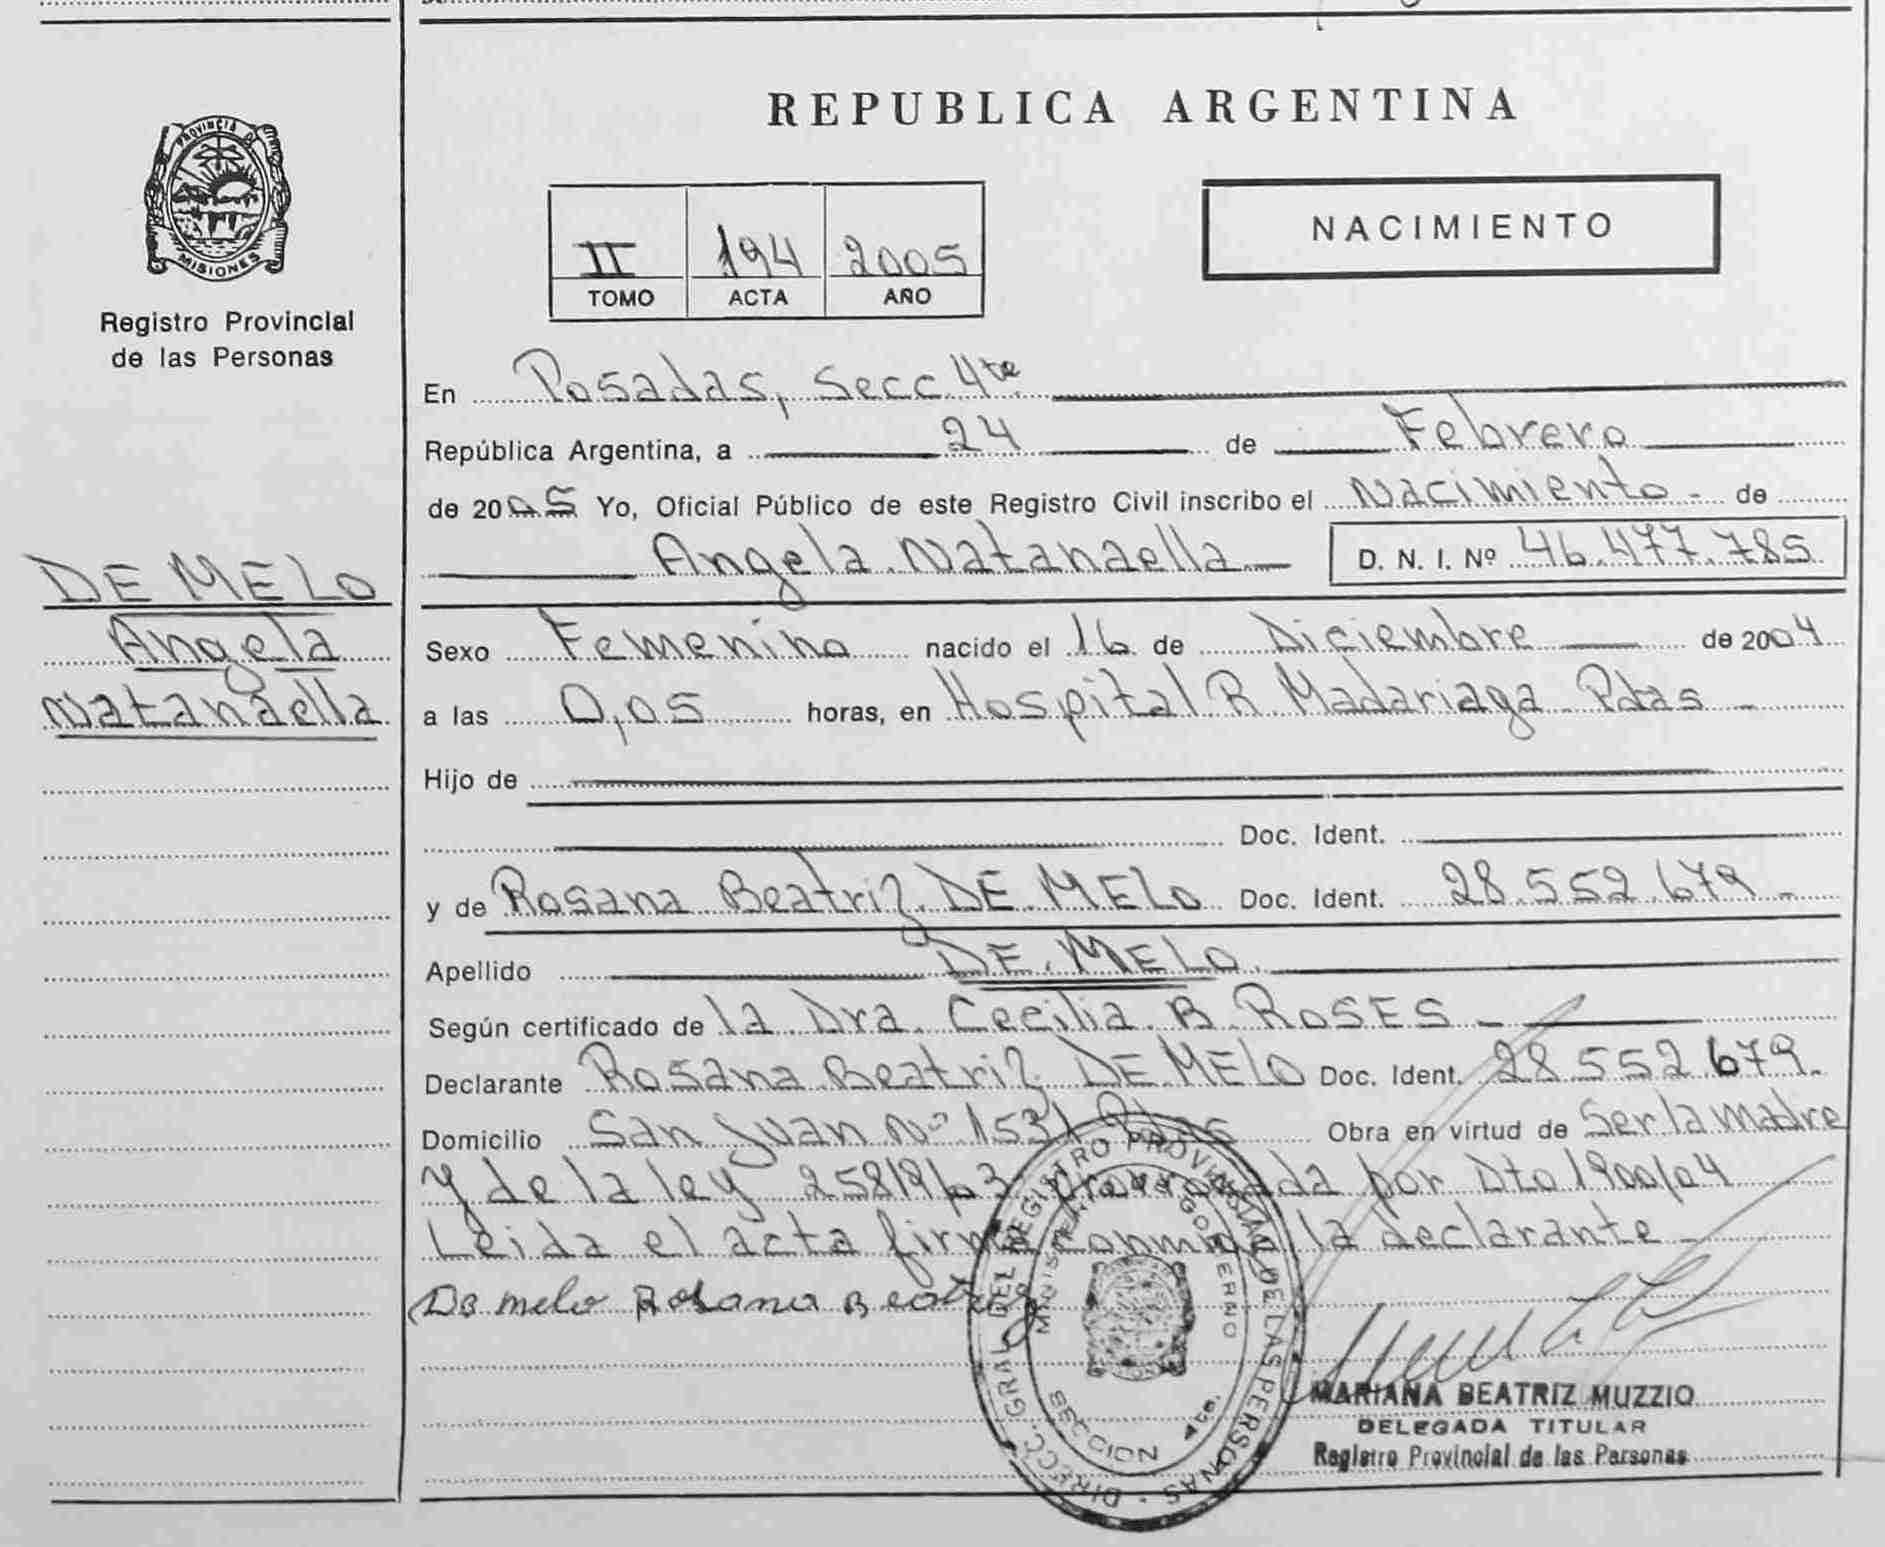 PROVINCIA DE
MISIONES
Registro Provincial
de las Personas
DE MELO
Angela
Natanaella
REPUBLICA ARGENTINA
II 194 2005
TOMO ACTA AÑO
NACIMIENTO
En Posadas, Secc 4ta
República Argentina, a 24 de Febrero
de 2005 Yo, Oficial Público de este Registro Civil inscribo el Nacimiento - de
Angela Natanaella D. N. I. Nº 46.477.785
Sexo Femenino nacido el 16 de Diciembre de 2004
a las 0,05 horas, en Hospital R. Madariaga Pdas -
Hijo de
Doc. Ident.
y de Rosana Beatriz DE MELO Doc. Ident. 28.552.679.-
Apellido DE MELO
Según certificado de la Dra. Cecilia B. ROSES -
Declarante Rosana Beatriz DE MELO Doc. Ident. 28 552 679.
Domicilio San Juan Nº 1531 Pdas Obra en virtud de Ser la madre
y de la ley 25819/03 prorrogada por Dto 1900/04
Leida el acta firma conmigo la declarante -
De melo Rosana Beatriz
DIRECC. GRAL DEL REGISTRO PROVINCIAL DE LAS PERSONAS
MINISTERIO GOBIERNO
SECCION 4ta.
MARIANA BEATRIZ MUZZIO
DELEGADA TITULAR
Registro Provincial de las Personas